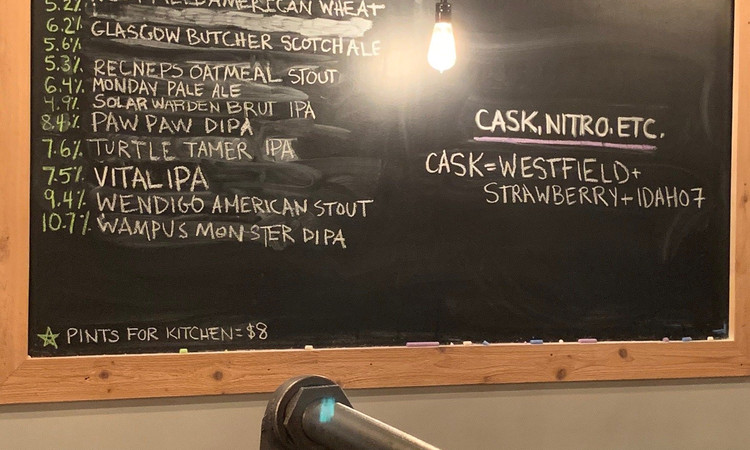 5.2% AMERICAN WHEAT
6.2% GLASGOW BUTCHER SCOTCH ALE
5.6%
5.3% RECNEPS OATMEAL STOUT
6.4% MONDAY PALE ALE
4.9% SOLAR WARDEN BRUT IPA
8.4% PAW PAW DIPA
7.6% TURTLE TAMER IPA
7.5% VITAL IPA
9.4% WENDIGO AMERICAN STOUT
10.7% WAMPUS MONSTER DIPA
PINTS FOR KITCHEN = $8
CASK, NITRO, ETC.
CASK = WESTFIELD +
STRAWBERRY + IDAHO 7